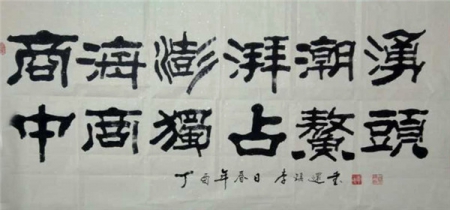 商海澎湃潮湧
中商獨占鰲頭
丁酉年春日 李 運書